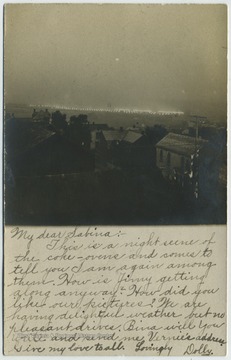 My dear Sabina:-
This is a night scene of
the coke-ovens and comes to
tell you I am again among
them. How is Jinny getting
along anyway? How did you
like our pictures? We are
having delightful weather but no
pleasant drives. Bina will you
write and send me Vernie's address
Give my love to all. Lovingly Dolly.